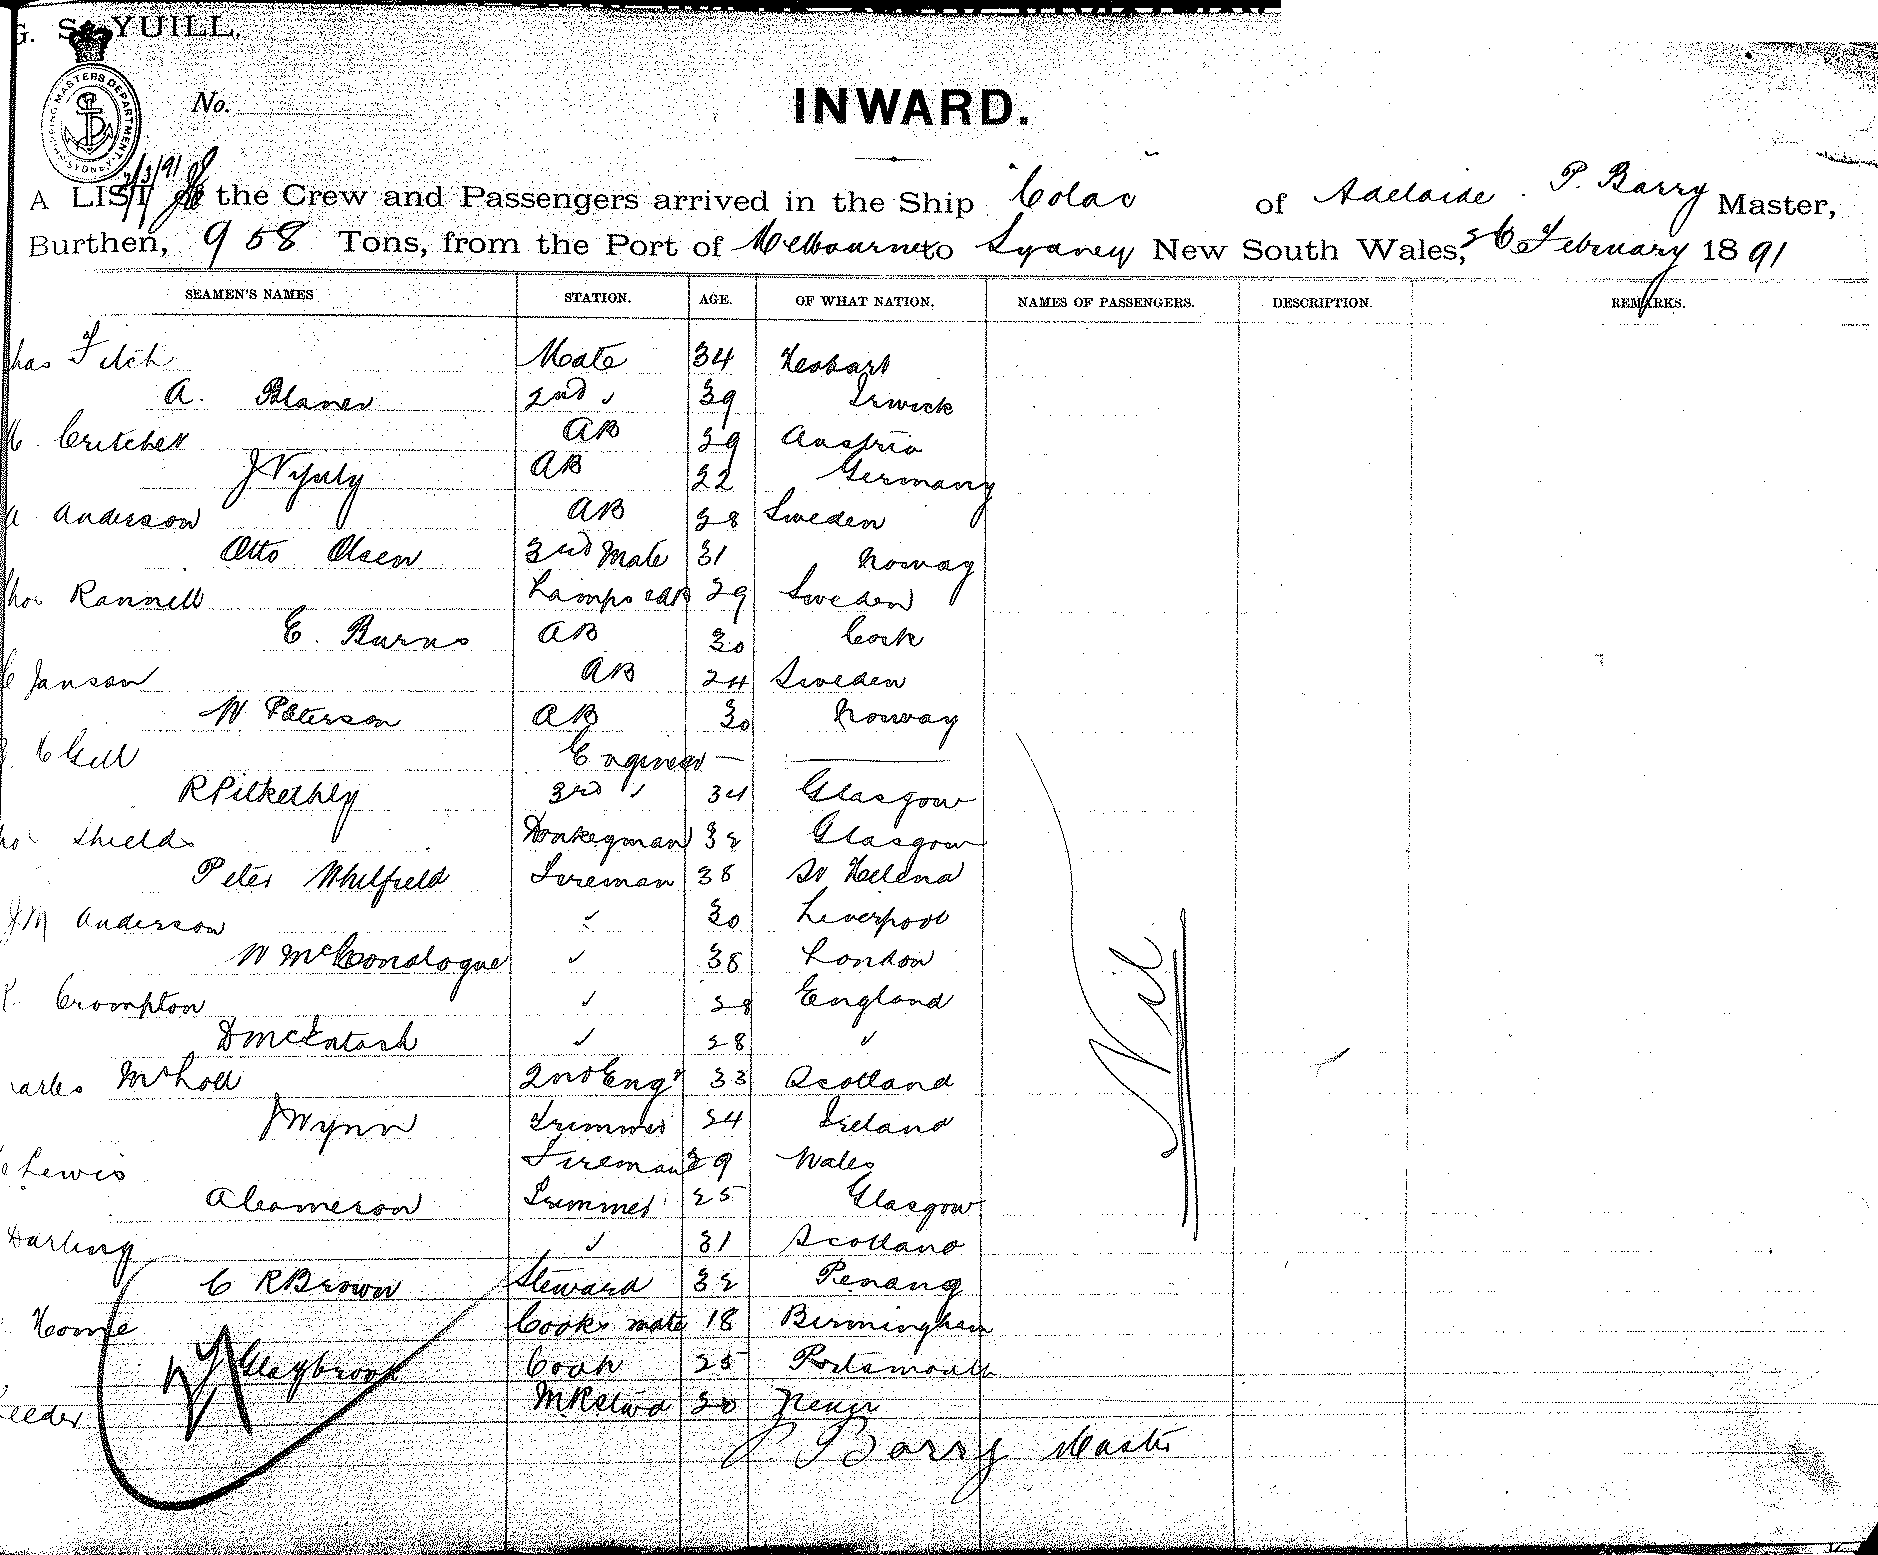 G. S. YUILL.
SHIPPING MASTERS DEPARTMENT SYDNEY
No.
INWARD.
2/3/91
A LIST of the Crew and Passengers arrived in the Ship "Colac" of Adelaide. P. Barry Master,
Burthen, 958 Tons, from the Port of Melbourne to Sydney New South Wales, 26 February 1891
SEAMEN'S NAMES STATION. AGE. OF WHAT NATION. NAMES OF PASSENGERS. DESCRIPTION. REMARKS.
has Fitch Mate 34 Hobart
A. 2nd " 39
Critchell AB 29 Austria
J AB 22 Germany
A Anderson AB 28 Sweden
Otto Olsen 3rd Mate 31 Norway
hos Rannell Lamps &AB 29 Sweden
E. Burns AB 30 Cork
C Janson AB 24 Sweden
W Paterson AB 30 Norway
C Gill Engineer — —
R Pilkethly 3rd " 34 Glasgow
hos Shields Donkeyman 32 Glasgow
Peter Whitfield Fireman 38 St Helena
J M Anderson " 30 Liverpool
W McConologue " 38 London
R Crompton " 28 England
D McIntosh " 28 "
arles 2nd Engr 33 Scotland
J Wynn Trimmer 24 Ireland
Lewis Fireman 29 Wales
A Cameron Trimmer 25 Glasgow
Darling " 31 Scotland
C R Brown Steward 32 Penang
Home Cooks mate 18 Birmingham
Claybrook Cook 25 Portsmouth
eeder 20
Nil
P Barry Master